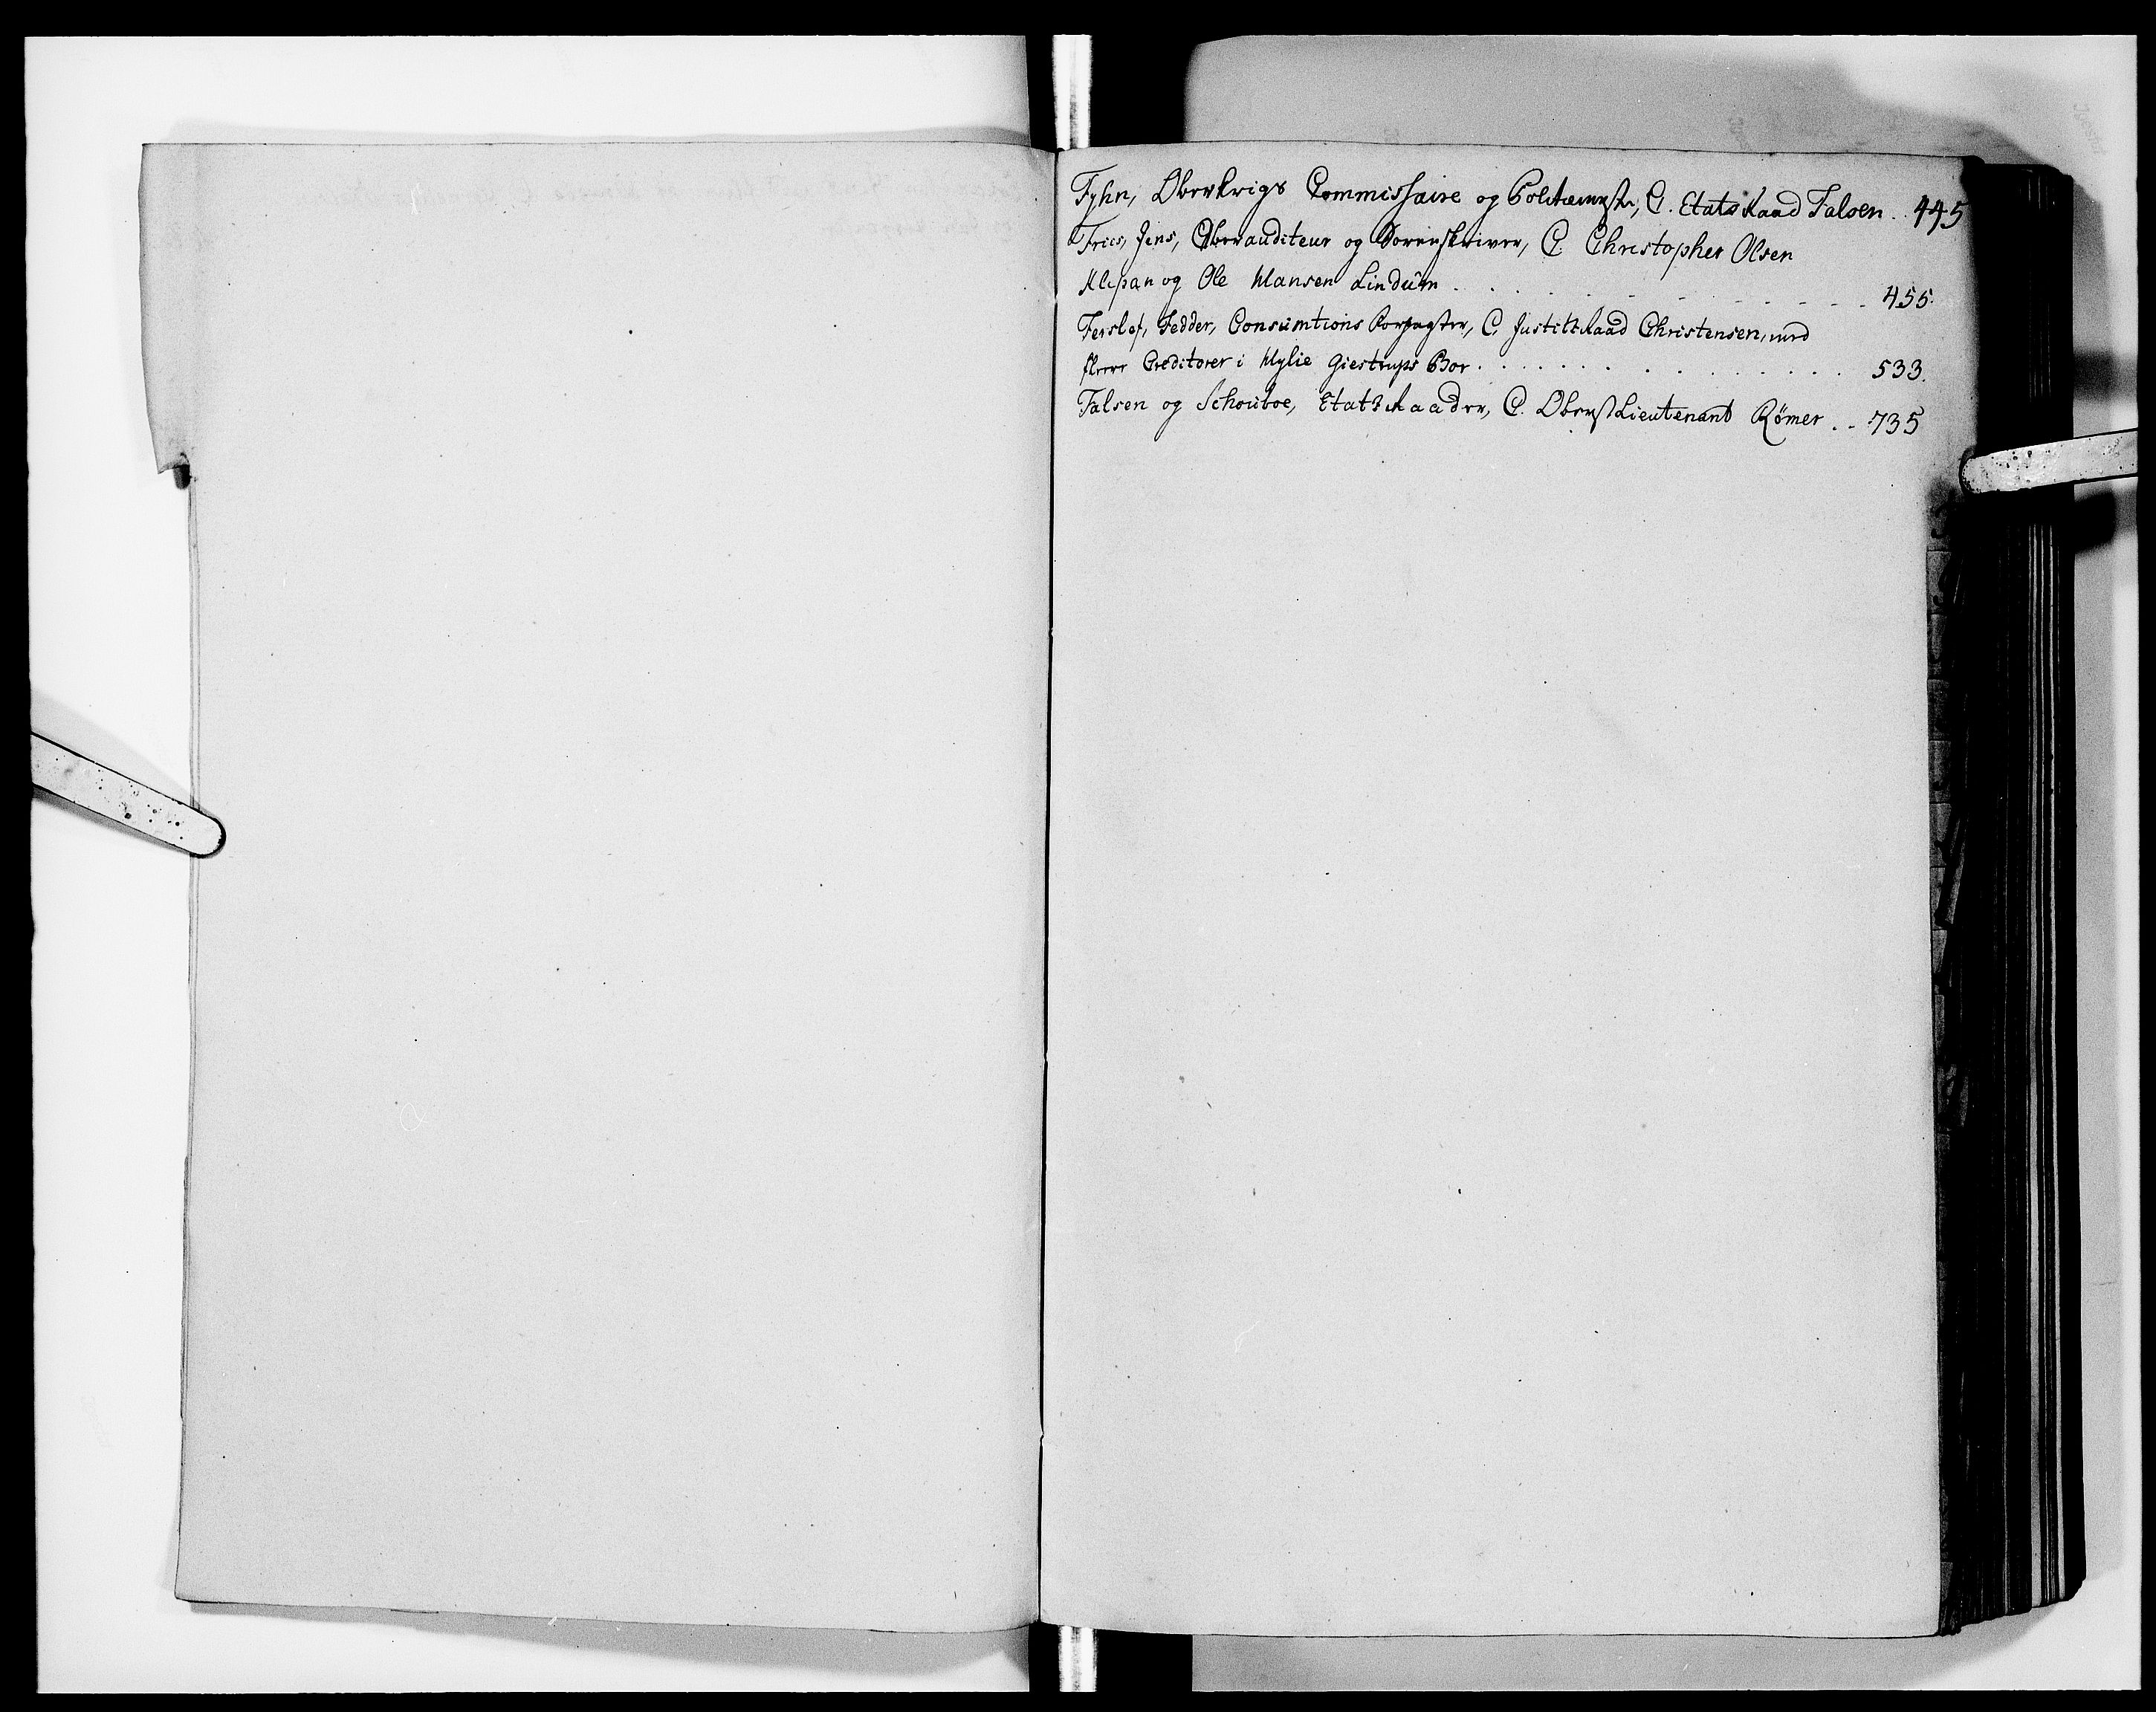 Fyhn, Oberkrigs Commissaire og Politiemester, C. Etats Raad Falsen .. 445
Fries, Jens, Oberauditeur og Sorenskriver, C. Christopher Olsen
Klepan og Ole Hansen Lindüm . . . . . . . . . . 455.
Ferslef, Fedder, Consumtions Forpagter, C. Justitz Raad Christensen, med
fleere Creditorer i Mylie Giestrups Boe . . . . . . . . . . 533.
Falsen og Schouboe, Etats Raader, C. Oberst Lieutenant Rømer . . 735